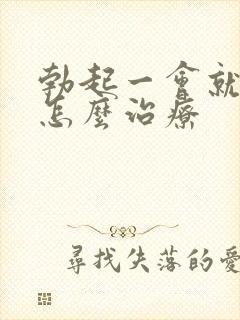 勃起一會就
怎麼治療
尋找失落的愛